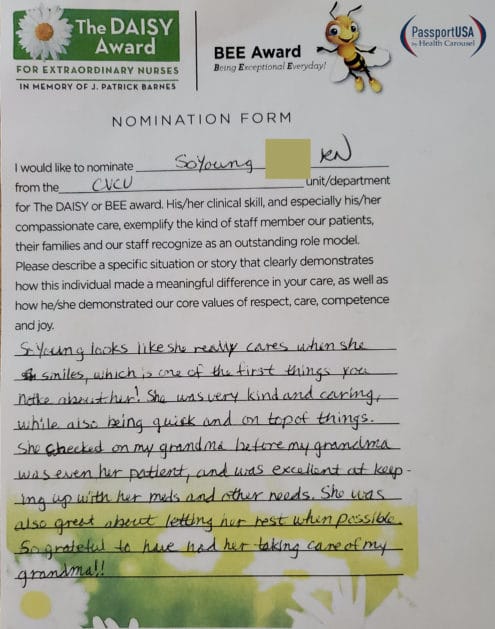 The DAISY
Award
FOR EXTRAORDINARY NURSES
IN MEMORY OF J. PATRICK BARNES
BEE Award
Being Exceptional Everyday!
PassportUSA
by Health Carousel
NOMINATION FORM
I would like to nominate SoYoung RN
from the CVCU unit/department
for The DAISY or BEE award. His/her clinical skill, and especially his/her
compassionate care, exemplify the kind of staff member our patients,
their families and our staff recognize as an outstanding role model.
Please describe a specific situation or story that clearly demonstrates
how this individual made a meaningful difference in your care, as well as
how he/she demonstrated our core values of respect, care, competence
and joy.
SoYoung looks like she really cares when she
smiles, which is one of the first things you
notice about her! She was very kind and caring,
while also being quick and on top of things.
She checked on my grandma before my grandma
was even her patient, and was excellent at keep-
ing up with her meds and other needs. She was
also great about letting her rest when possible.
So grateful to have had her taking care of my
grandma!!